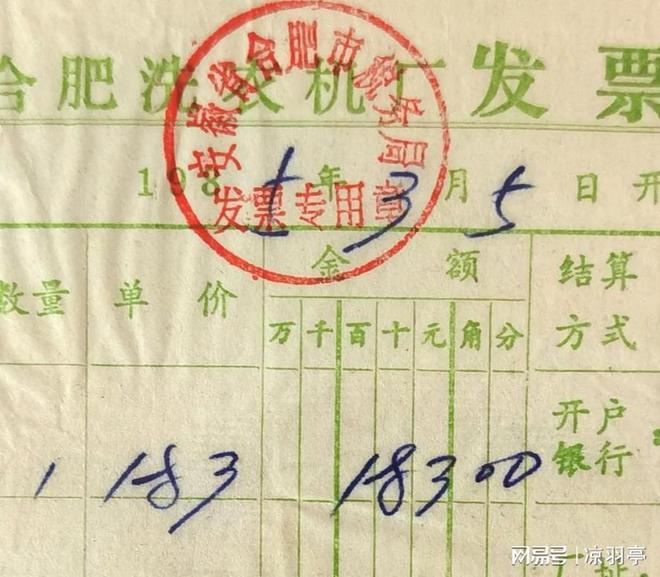 合肥洗衣机厂发票
安徽省合肥市税务局
发票专用章
1985年3月5日开
数量 单价 金额 结算方式
万千百十元角分
开户银行
1 183 18300
网易号 | 凉羽亭